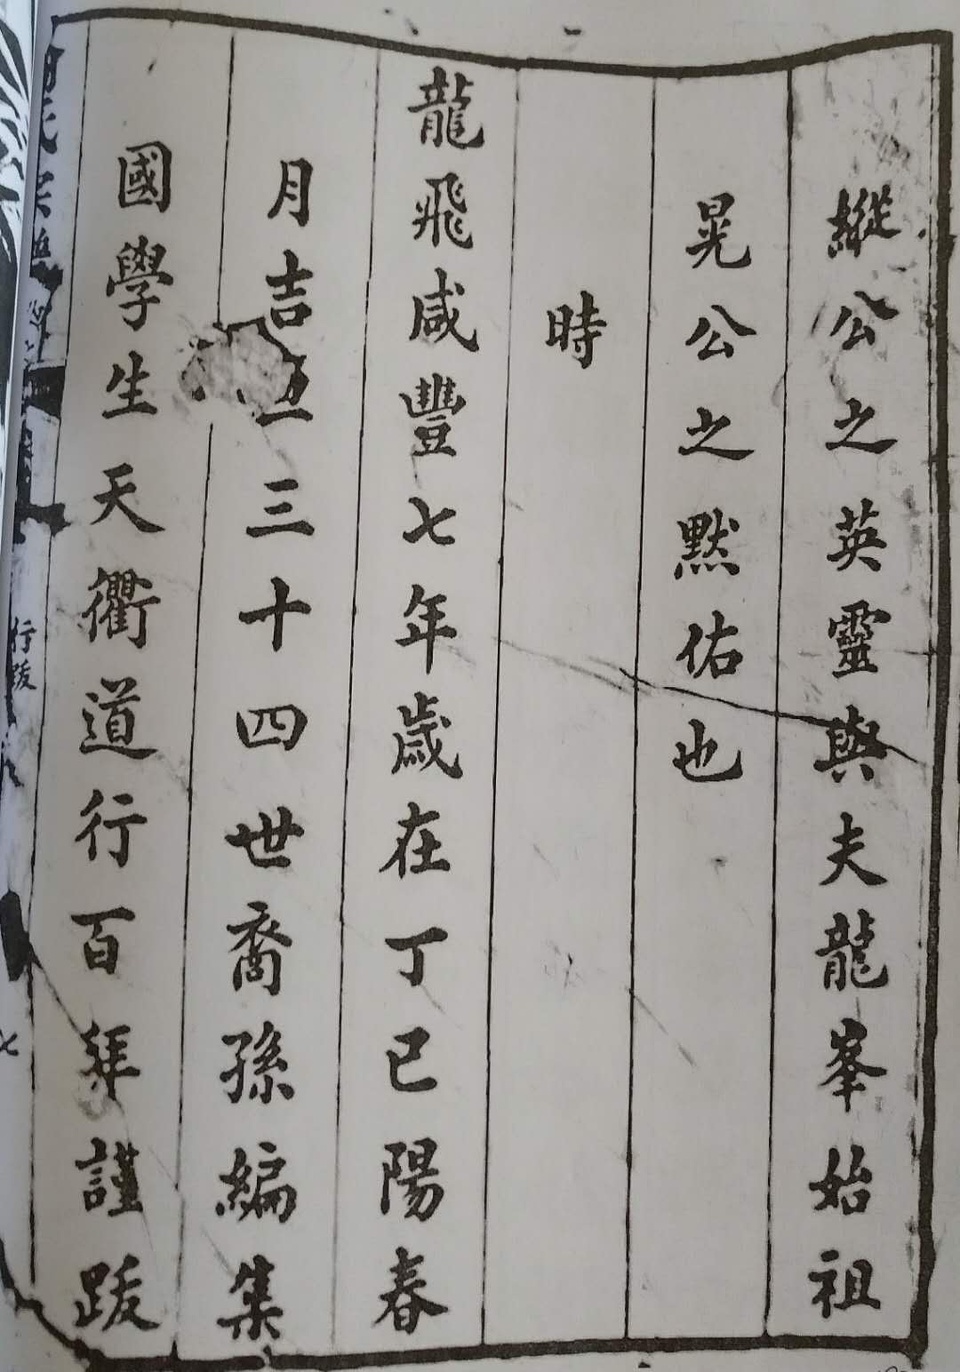 縱公之英靈與夫龍峯始祖
晃公之默佑也
時
龍飛咸豐七年歲在丁巳陽春
月吉立三十四世裔孫編集
國學生天衢道行百拜謹跋
行跋
七